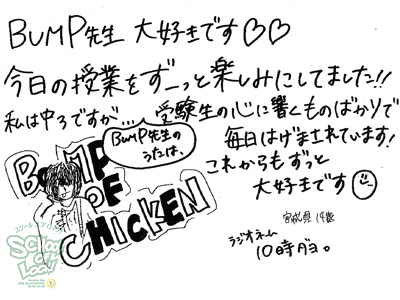 BUMP先生 大好きです♡♡
今日の授業をずーっと楽しみにしてました!!
私は中3ですが… 受験生の心に響くものばかりで
BUMP先生の
うたは、
毎日はげまされています!
これからもずっと
大好きです
BUMP
OF
CHICKEN
宮城県 14歳
ラジオネーム
10時ダヨ。
スクールオブロック
SCHOOL
OF
LOCK!